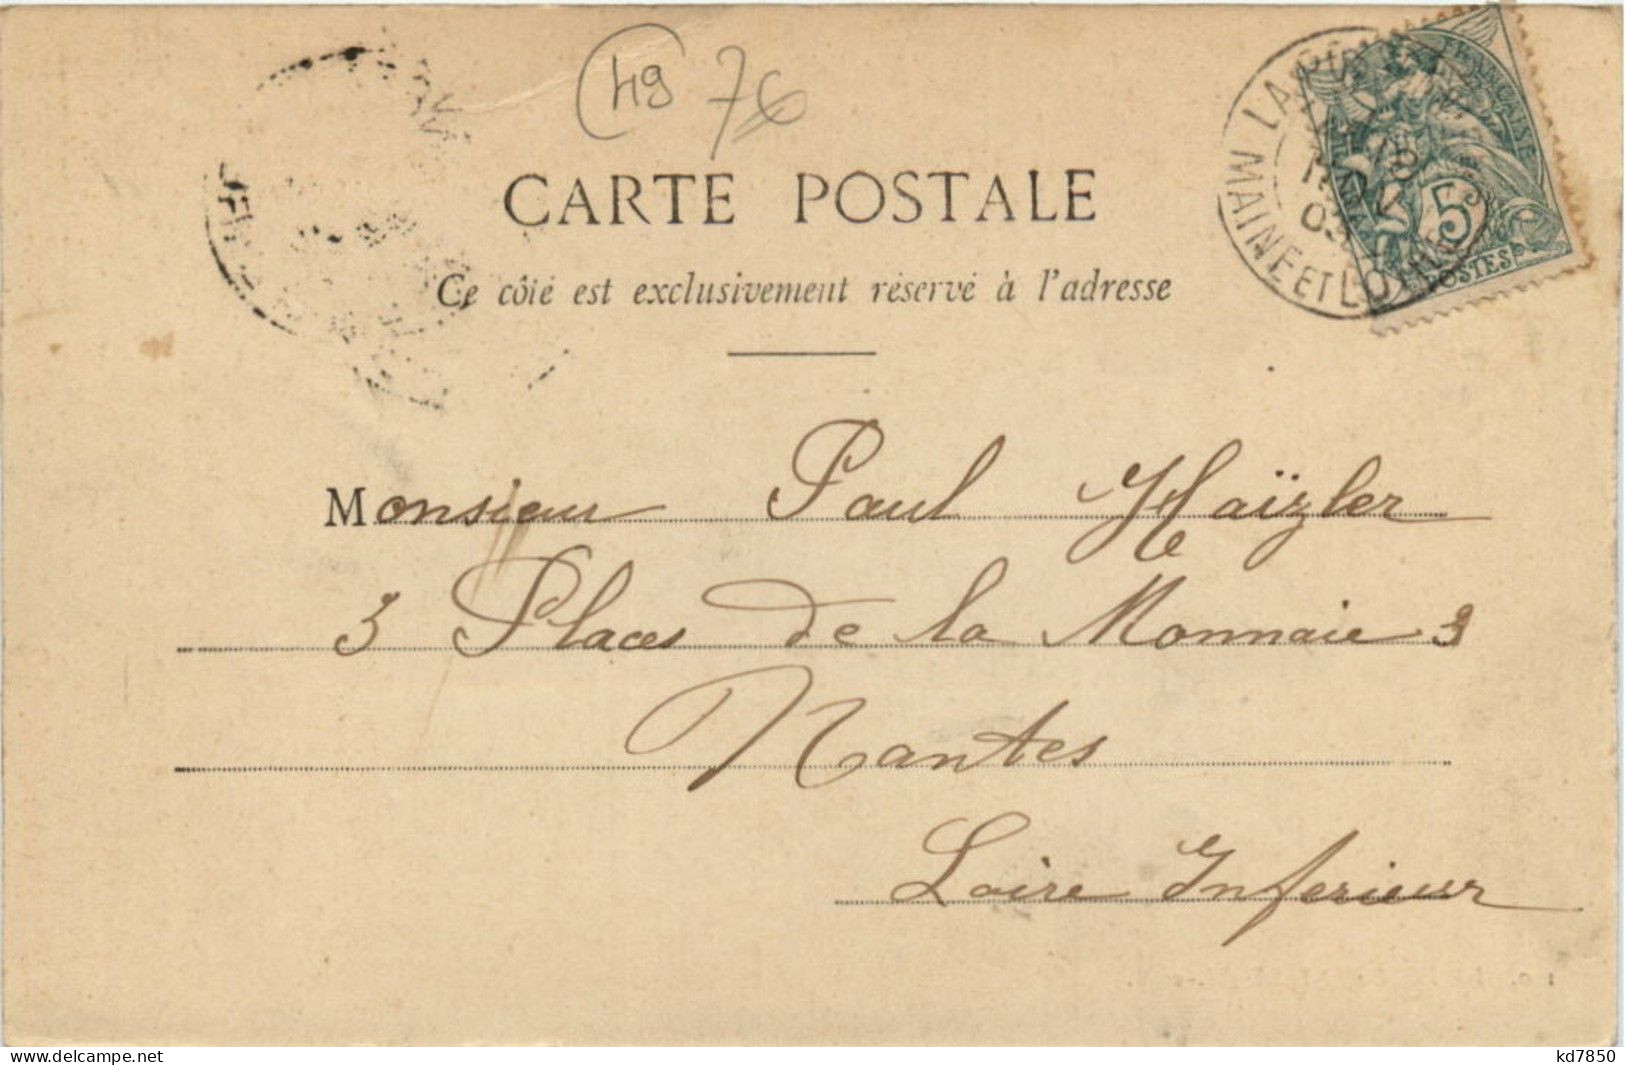 49 76
CARTE POSTALE
Ce côté est exclusivement réservé à l'adresse
FRANÇAISE
5
POSTES
MAINE ET LOIRE
03
Monsieur Paul Haïzler
3 Places de la Monnaie 3
Nantes
Loire Inferieur
www.delcampe.net
kd7850